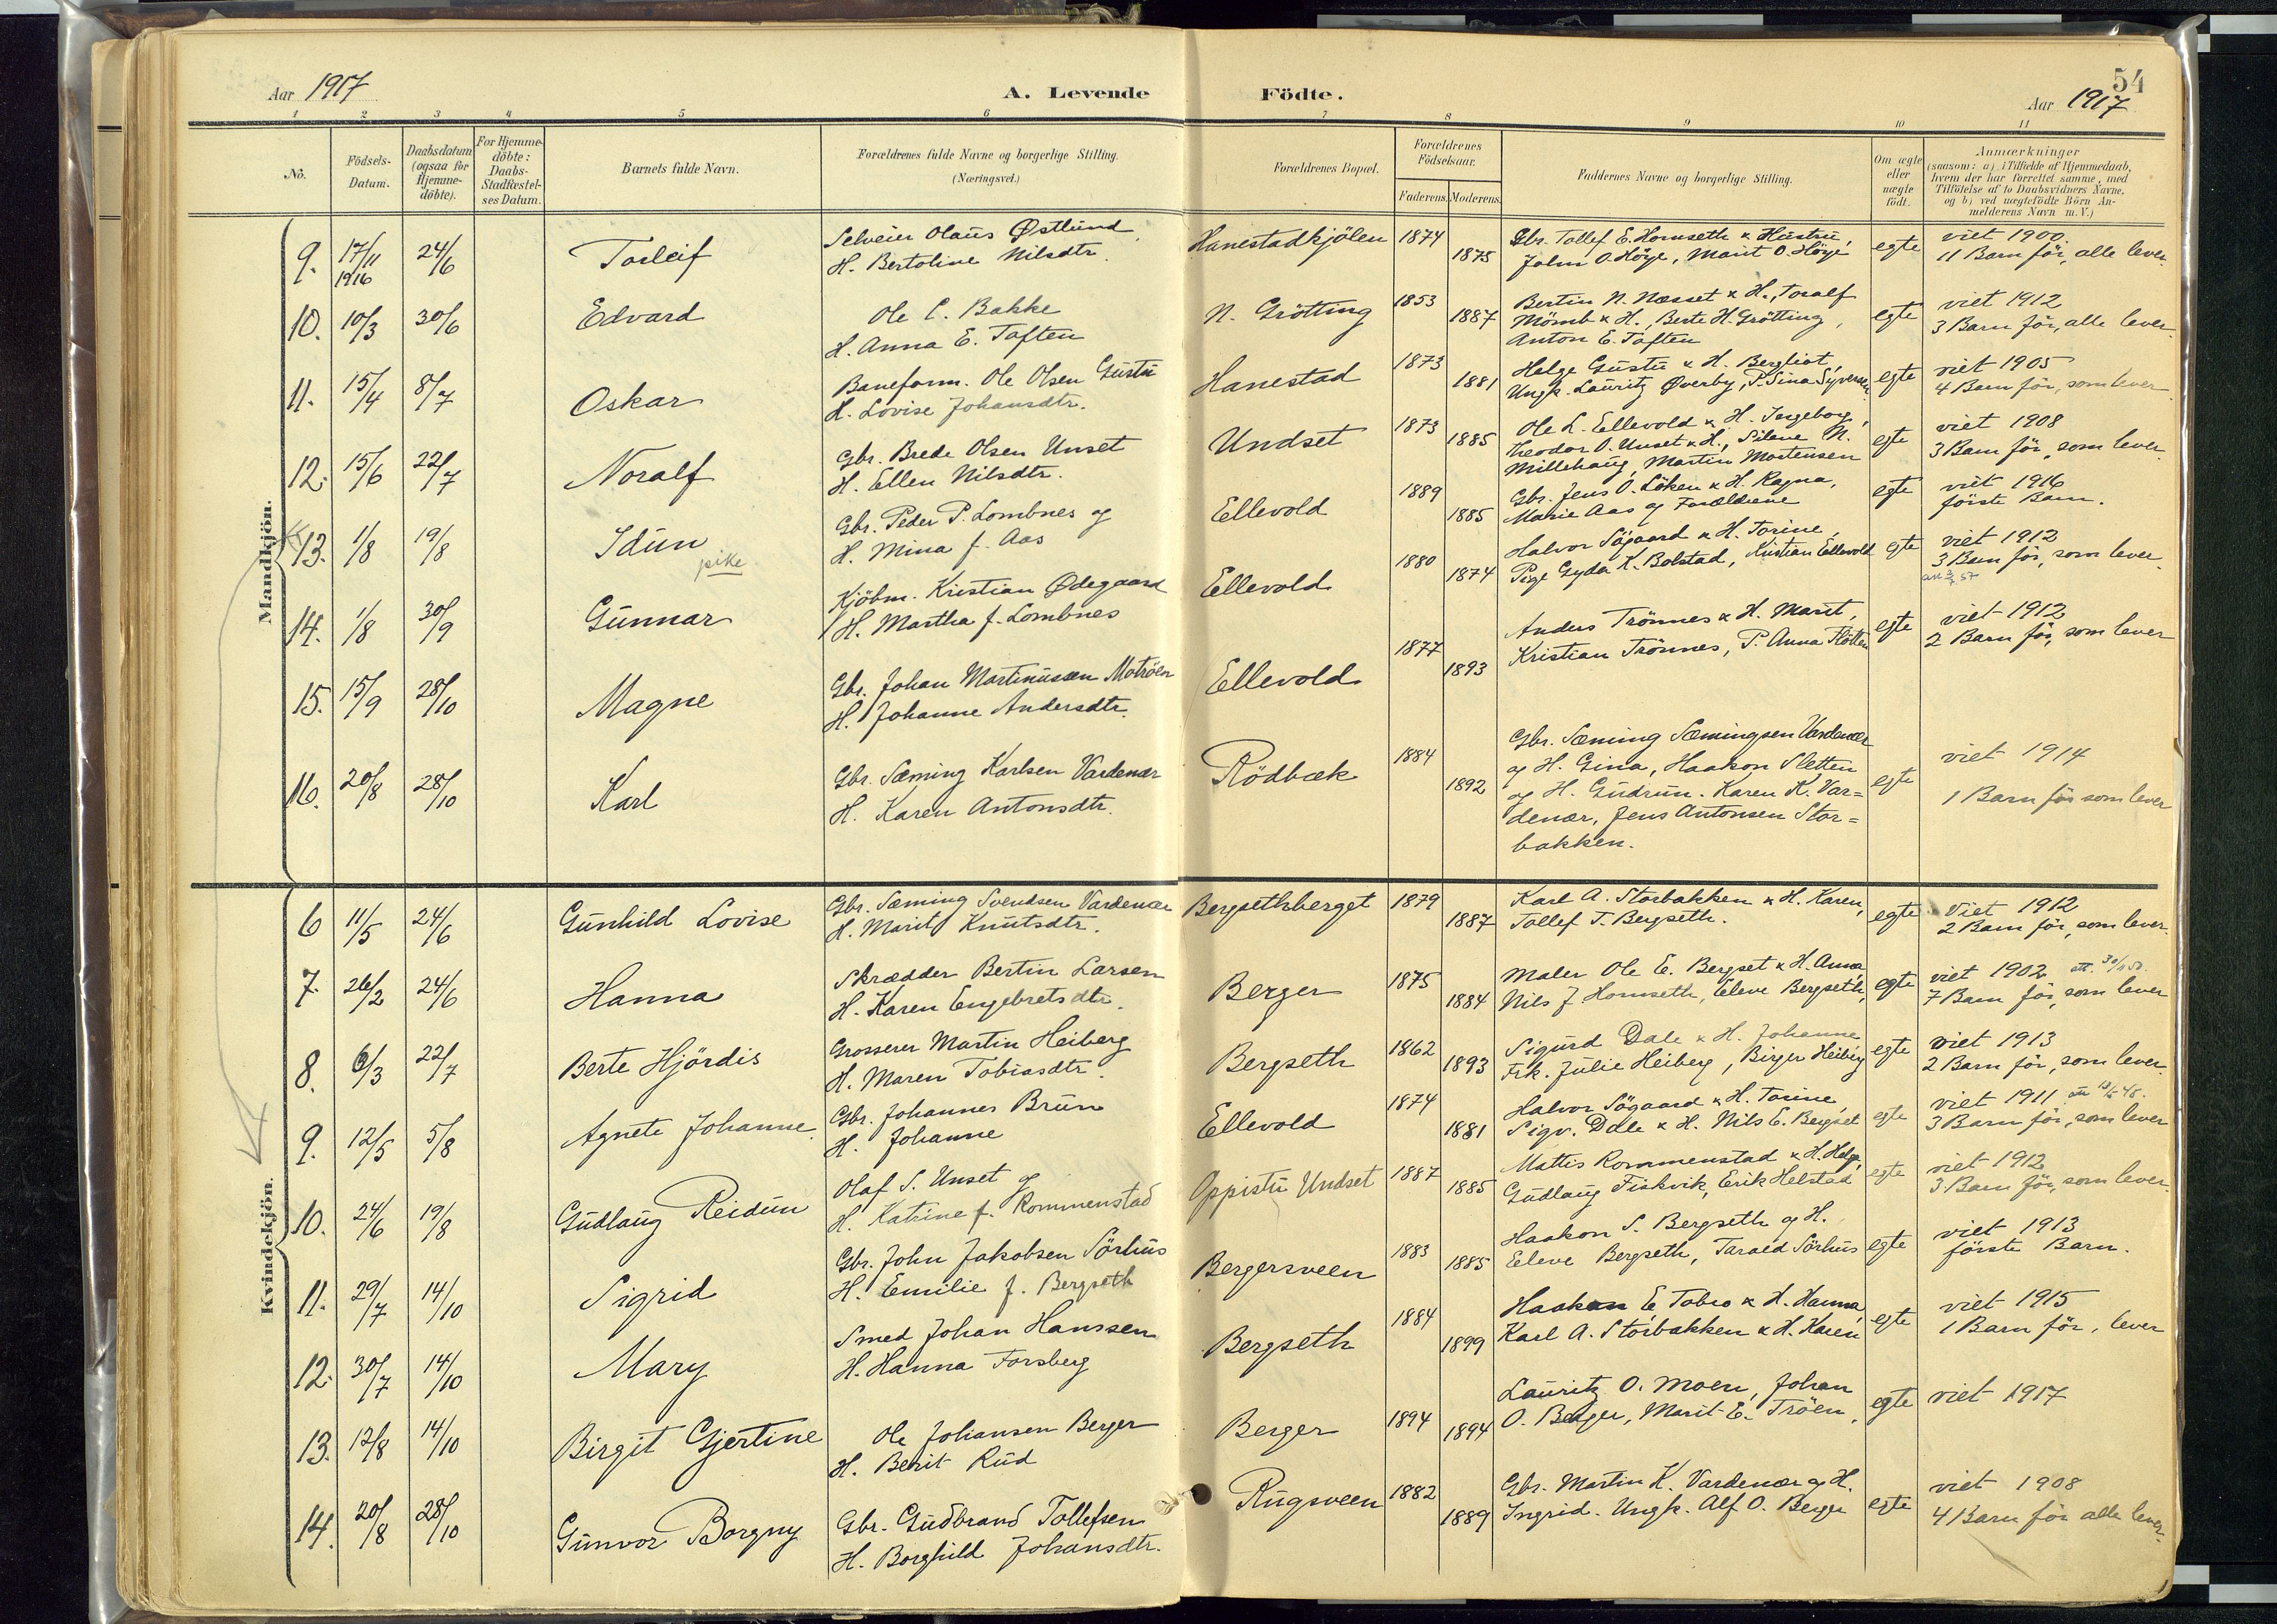 Aar 1917
A. Levende Födte.
54
Aar 1917
1 2 3 4 5 6 7 8 9 10 11
No.
Födsels-Datum.
Daabsdatum (ogsaa for Hjemme-döbte).
For Hjemme-döbte: Daabs-Stadfæstel-ses Datum.
Barnets fulde Navn.
Forældrenes fulde Navne og borgerlige Stilling.
(Næringsvei.)
Forældrenes Bopæl.
Forældrenes Födselsaar.
Faderens. Moderens.
Faddernes Navne og borgerlige Stilling.
Om ægte eller uægte födt.
Anmærkninger
(saasom: a) i Tilfælde af Hjemmedaab,
hvem der har forrettet samme, med
Tilföielse af to Daabsvidners Navne.
og b) ved uægtefödte Börn An-
melderens Navn m. V.)
Mandkjön.
9. 17/11 1916 24/6 Torleif
Selveier Olaus Østlund,
H. Bertoline Nilsdtr.
Hanestadkjölen 1874 1875
Gbr. Tollef E. Hornseth & Hustru,
John O. Höye, Marit O. Höye
egte
viet 1900
11 Barn för, alle lever.
10. 10/3 30/6 Edvard
Ole C. Bakke
H. Anna E. Taften
N. Grötting 1853 1887
Bertin N. Næsset & H., Toralf
Mömb & H., Berte H. Grötting,
Anton E. Taften
egte
viet 1912
3 Barn för, alle lever
11. 15/4 8/7 Oskar
Baneform. Ole Olsen Gustu
H. Lovise Johansdtr.
Hanestad 1873 1881
Helge Gustu & H. Bergliot,
Ungk. Lauritz Øverby, P. Sina Syversen
egte
viet 1905
4 Barn för, som lever
12. 15/6 22/7 Noralf
Gbr. Brede Olsen Unset
H. Ellen Nilsdtr.
Undset 1873 1885
Ole L. Ellevold & H. Ingeborg,
Theodor O. Unset & H., Silene N.
Millehaug, Martin Mortensen
egte
viet 1908
3 Barn för, som lever
13. 1/8 19/8 Idun
pike
Gbr. Peder P. Lombnes og
H. Mina f. Aas
Ellevold 1889 1885
Gbr. Jens O. Löken & H. Ragna,
Marie Aas og Forældrene
egte
viet 1916
förste Barn.
14. 1/8 30/9 Gunnar
Kjöbm. Kristian Ødegaard
H. Martha f. Lombnes
Ellevold 1880 1874
Halvor Sögaard & H. Torine,
Pige Gyda K. Bolstad, Kristian Ellevold
egte
viet 1912
3 Barn för, som lever.
15. 15/9 28/10 Magne
Gbr. Johan Martinussen Motröen
H. Johanne Andersdtr.
Ellevold 1877 1893
Anders Trönnes & H. Marit,
Kristian Trönnes, P. Anna Flötten
egte
viet 1912
2 Barn för, som lever
16. 20/8 28/10 Karl
Gbr. Sæming Karlsen Vardenær
H. Karen Antonsdtr.
Rödbæk 1884 1892
Gbr. Sæming Sæmingsen Vardenær
og H. Gina, Haakon Sletten
og H. Gudrun. Karen K. Var=
denær, Jens Antonsen Stor=
bakken.
egte
viet 1914
1 Barn för som lever
Kvindekjön.
6 11/5 24/6 Gunhild Lovise
Gbr. Sæming Svendsen Vardenær
H. Marit Knutsdtr.
Bergsethberget 1879 1887
Karl A. Storbakken & H. Karen,
Tollef T. Bergseth.
egte
Viet 1912
2 Barn för, som lever.
7. 26/2 24/6 Hanna
Skrædder Bertin Larsen
H. Karen Engebretsdtr.
Berger 1875 1884
Maler Ole E. Bergset & H. Anna,
Nils J Hornseth, Eleve Bergseth,
egte
viet 1902
7 Barn för, som lever
8. 6/3 22/7 Berte Hjördis
Grosserer Martin Heiberg
H. Maren Tobiasdtr.
Bergseth 1862 1893
Sigurd Dale & H. Johanne
Frk. Julie Heiberg, Birger Heiberg
egte
viet 1913
2 Barn för, som lever.
9. 12/5 5/8 Agnete Johanne
Gbr. Johannes Brun
H. Johanne
Ellevold 1874 1881
Halvor Sögaard & H. Torine,
Sigv. Dale & H. Nils E. Bergset
egte
viet 1911
3 Barn för, som lever
10. 24/6 19/8 Gudlaug Reidun
Olaf S. Unset og
H. Katrine f. Rommenstad
Oppistu Undset 1887 1885
Mattis Rommenstad & H. Helga,
Gudlaug Fiskvik, Erik Helstad
egte
viet 1912
3 Barn för, som lever.
11. 29/7 14/10 Sigrid
Gbr. John Jakobsen Sörhus
H. Emilie f. Bergseth
Bergersveen 1883 1885
Haakon S. Bergseth og H.
Eleve Bergseth, Tarald Sörhus
egte
viet 1913
förste Barn.
12. 30/7 14/10 Mary
Smed Johan Hanssen
H. Hanna Forsberg
Bergseth 1884 1899
Haakon E Tobro & H. Hanna,
Karl A. Storbakken & H. Karen
egte
viet 1915
1 Barn för, lever
13. 12/8 14/10 Birgit Gjertine
Ole Johansen Berger
H. Berit Rud
Berger 1894 1894
Lauritz O. Moen, Johan
O. Berger, Marit E. Tröen,
egte
viet 1917
14. 20/8 28/10 Gunvor Borgny
Gbr. Gudbrand Tollefsen
H. Borghild Johansdtr.
Rugsveen 1882 1889
Gbr. Martin K. Vardenær og H.
Ingrid. Ungk. Alf O. Berger
egte
viet 1908
4 Barn för alle lever.